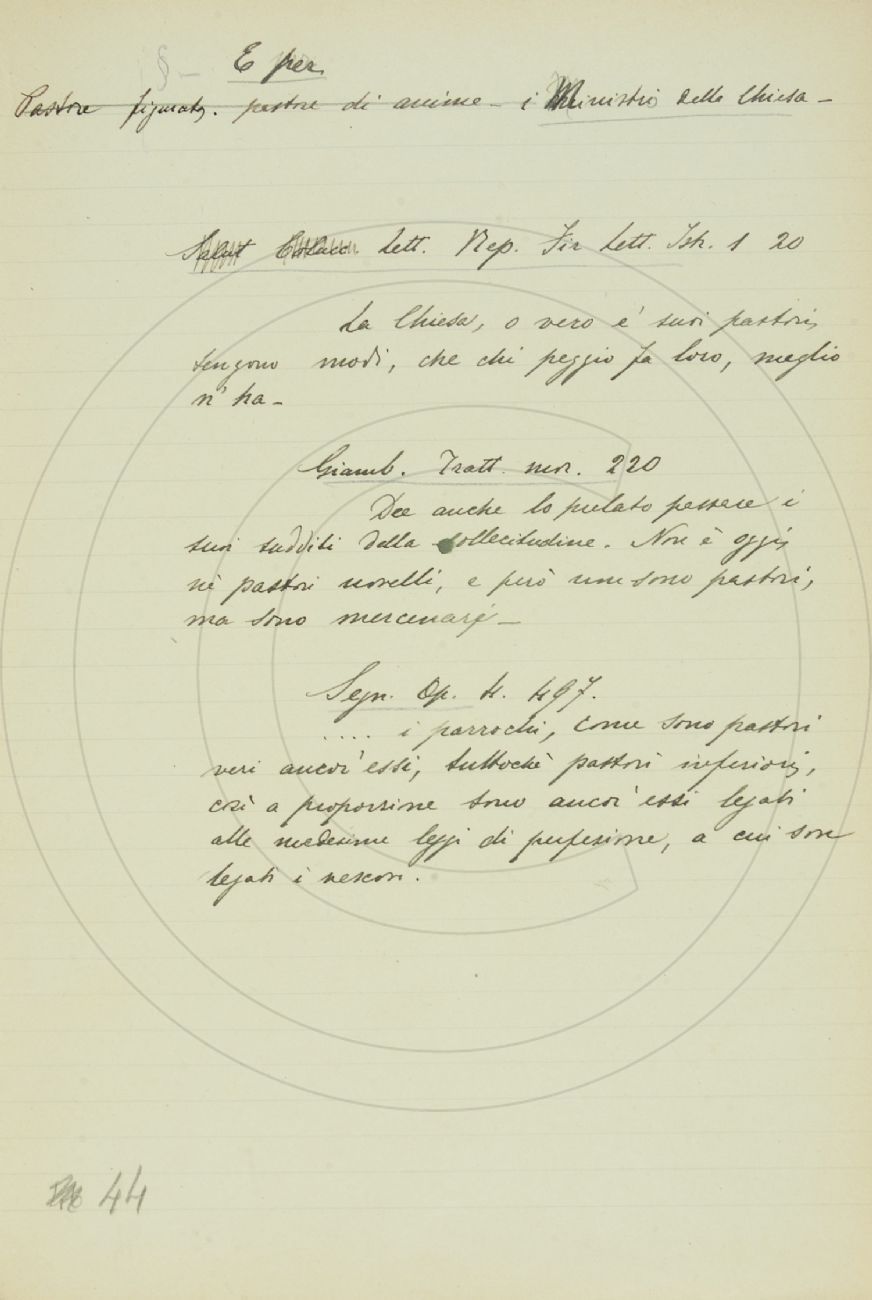 § –
E per
Pastore figurato. pastore di anime – i Ministri della Chiesa –
Salut Lett. Rep. Fir Lett. Istr. 1 20
La Chiesa, o vero e' suoi pastori,
tengono modi, che chi peggio fa loro, meglio
n' ha –
Giamb. Tratt. mor. 220
Dee anche lo prelato pessere i
suoi sudditi della sollecitudine. Non è oggi
nè pastori novelli, e però non sono pastori,
ma sono mercenarj –
Segn. Op. 4. 497.
.... i parrochi, come sono pastori
veri ancor' essi, tuttochè pastori inferiori,
così a proporzione sono ancor' essi legati
alle medesime leggi di perfezione, a cui son
legati i vescovi.
44